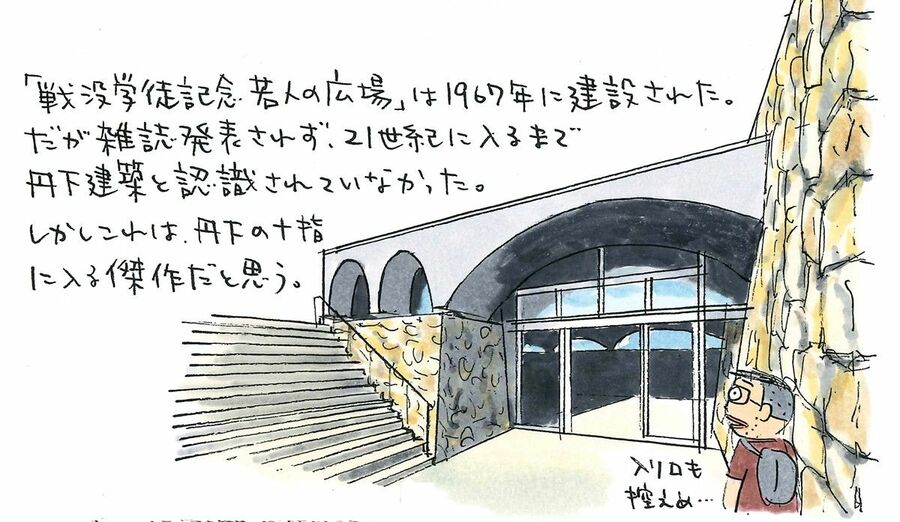 「戦没学徒記念 若人の広場」は1967年に建設された。
だが雑誌発表されず、21世紀に入るまで
丹下建築と認識されていなかった。
しかしこれは、丹下の十指
に入る傑作だと思う。
入り口も
控えめ…